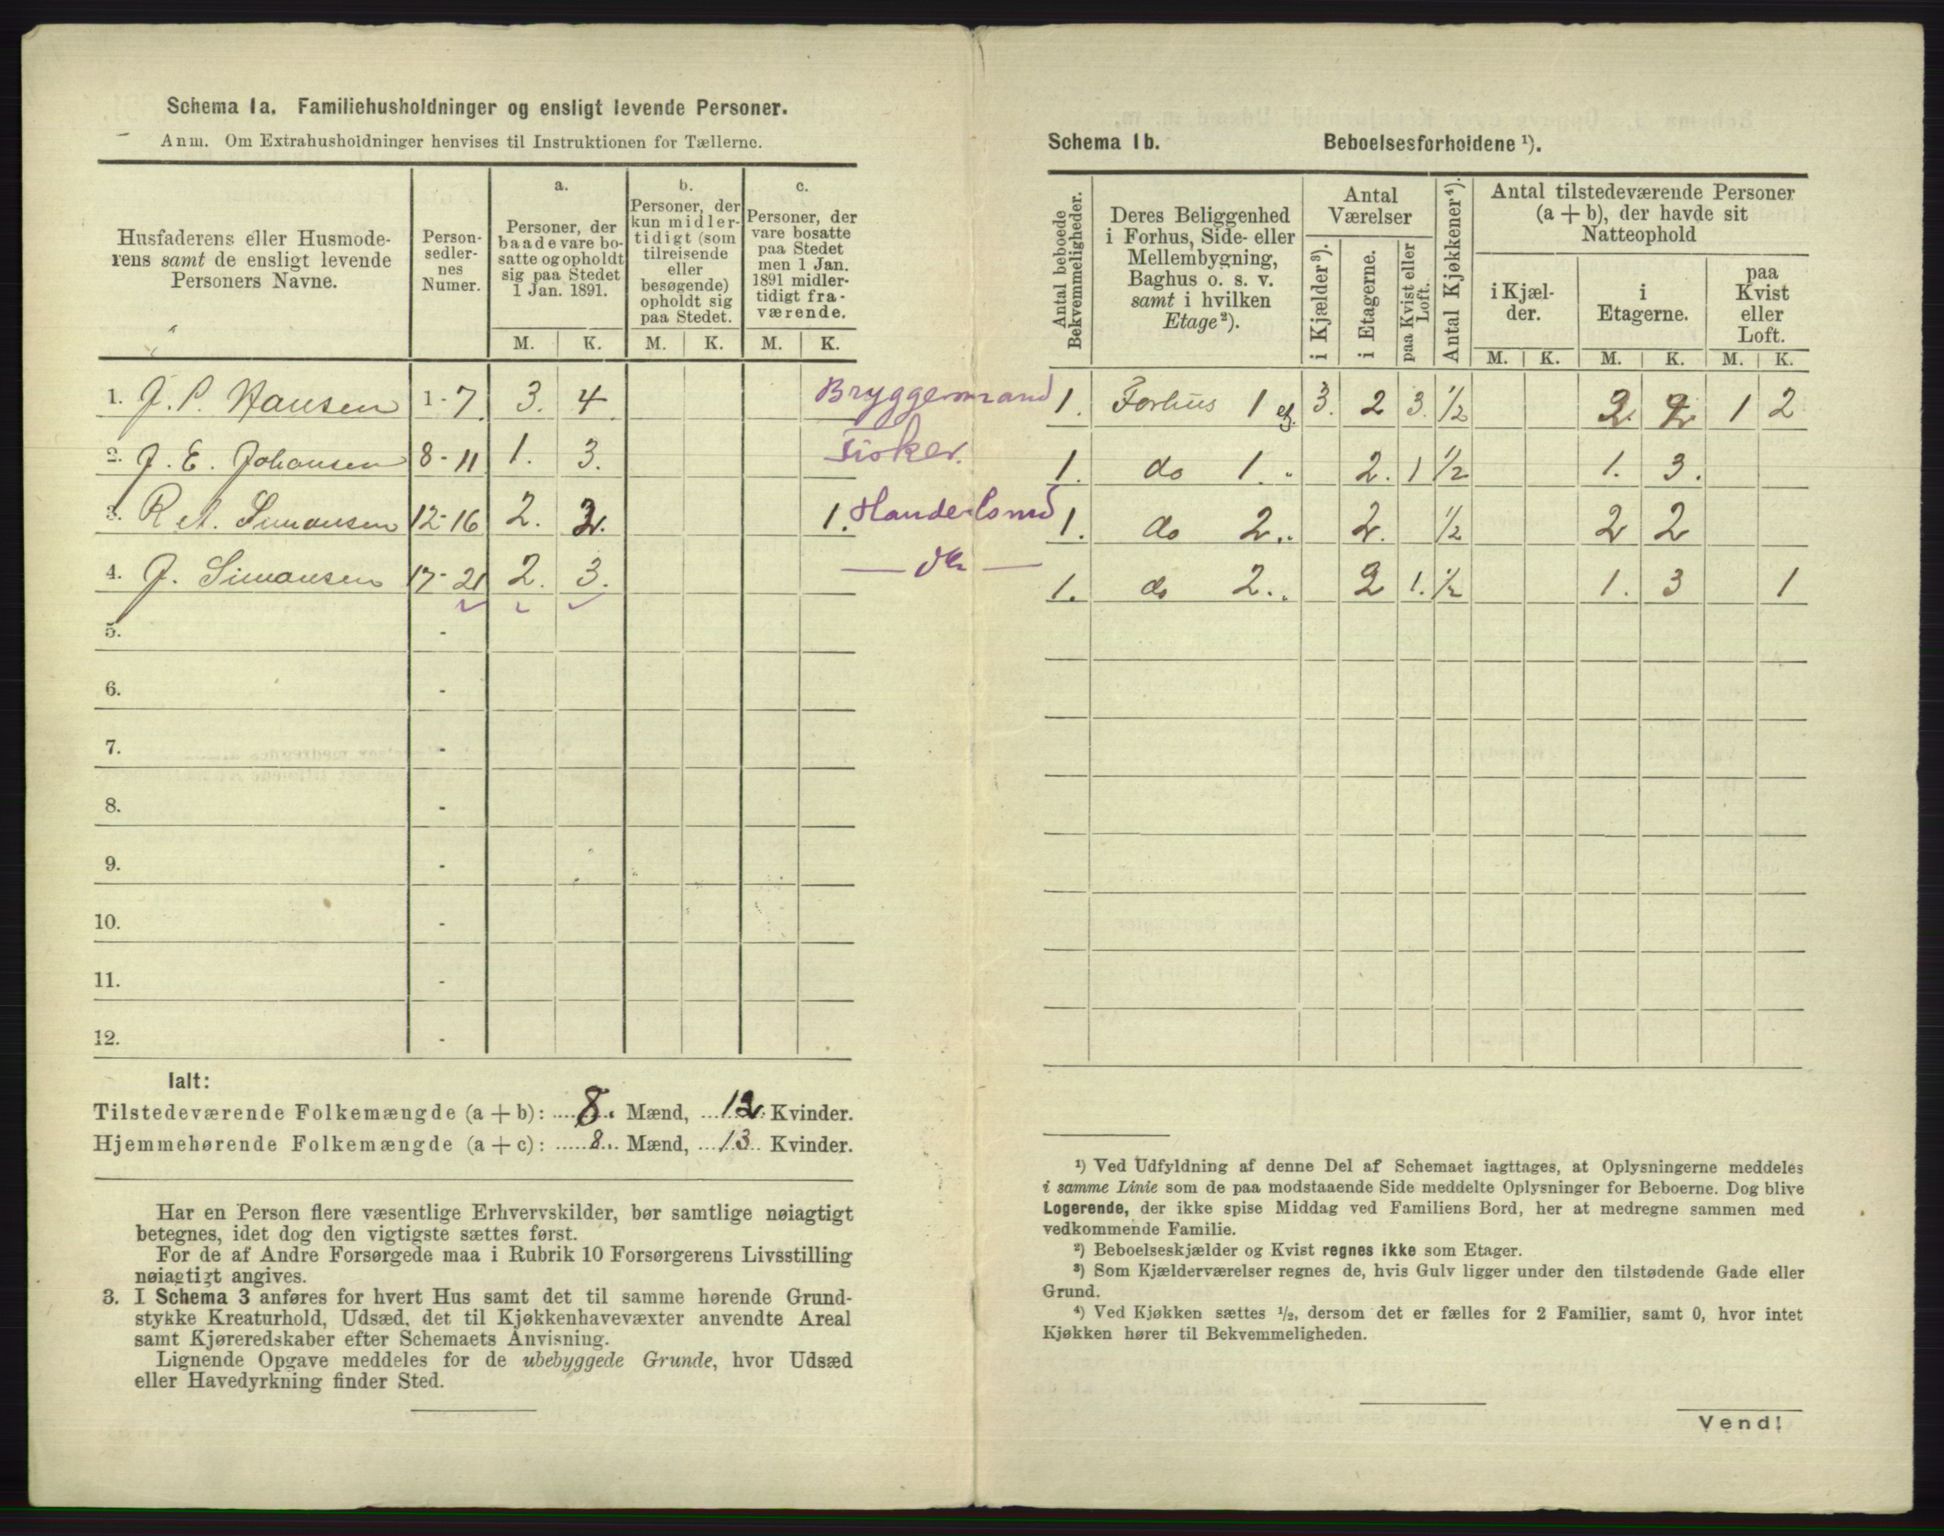 Schema 1a. Familiehusholdninger og ensligt levende Personer.
Anm. Om Extrahusholdninger henvises til Instruktionen for Tællerne.
Husfaderens eller Husmoderens samt de ensligt levende Personers Navne.
Personsedlernes Numer.
a.
Personer, der baade vare bosatte og opholdt sig paa Stedet 1 Jan. 1891.
b.
Personer, der kun midlertidigt (som tilreisende eller besøgende) opholdt sig paa Stedet.
c.
Personer, der vare bosatte paa Stedet men 1 Jan. 1891 midlertidigt fraværende.
M. K. M. K. M. K.
1. J. P. Hansen 1-7 3. 4 Bryggemand
2. J. E. Johansen 8-11 1. 3. Fisker.
3. R. A. Simonsen 12-16 2. 2. 1.
4. J. Simonsen 17-21 2. 3. — do —
5. -
6. -
7. -
8. -
9. -
10. -
11. -
12. -
Ialt:
Tilstedeværende Folkemængde (a + b): 8. Mænd, 12. Kvinder.
Hjemmehørende Folkemængde (a + c): 8. Mænd, 13 Kvinder.
Har en Person flere væsentlige Erhvervskilder, bør samtlige nøiagtigt
betegnes, idet dog den vigtigste sættes først.
For de af Andre Forsørgede maa i Rubrik 10 Forsørgerens Livsstilling
nøiagtigt angives.
3. I Schema 3 anføres for hvert Hus samt det til samme hørende Grund-
stykke Kreaturhold, Udsæd, det til Kjøkkenhavevæxter anvendte Areal
samt Kjøreredskaber efter Schemaets Anvisning.
Lignende Opgave meddeles for de ubebyggede Grunde, hvor Udsæd
eller Havedyrkning finder Sted.
Schema 1b. Beboelsesforholdene ¹).
Antal beboede Bekvemmeligheder.
Deres Beliggenhed i Forhus, Side- eller Mellembygning, Baghus o. s. v. samt i hvilken Etage ²).
Antal Værelser
i Kjælder ³).
i Etagerne.
paa Kvist eller Loft.
Antal Kjøkkener ⁴).
Antal tilstedeværende Personer (a + b), der havde sit Natteophold
i Kjælder.
i Etagerne.
paa Kvist eller Loft.
M. K. M. K. M. K.
1. Forhus 1 et. 3. 2 3. ½ 2. 2 1 2
1. do 1. „ 2. 1 ½ 1. 3.
1. do 2. „ 2. ½ 2 2
1. do 2. „ 2 1. ½ 1. 3 1
¹) Ved Udfyldning af denne Del af Schemaet iagttages, at Oplysningerne meddeles
i samme Linie som de paa modstaaende Side meddelte Oplysninger for Beboerne. Dog blive
Logerende, der ikke spise Middag ved Familiens Bord, her at medregne sammen med
vedkommende Familie.
²) Beboelseskjælder og Kvist regnes ikke som Etager.
³) Som Kjælderværelser regnes de, hvis Gulv ligger under den tilstødende Gade eller
Grund.
⁴) Ved Kjøkken sættes ½, dersom det er fælles for 2 Familier, samt 0, hvor intet
Kjøkken hører til Bekvemmeligheden.
Vend!